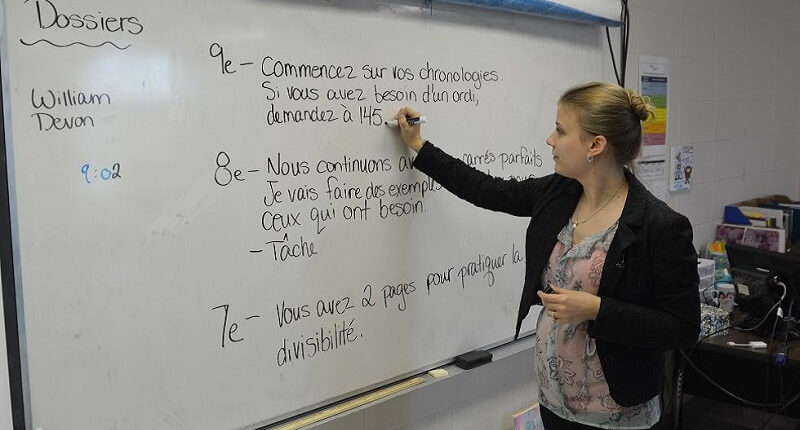 Dossiers
William
Devon
9:02
9e - Commencez sur vos chronologies.
Si vous avez besoin d'un ordi,
demandez à 145.
8e - Nous continuons carrés parfaits
Je vais faire des exemples
ceux qui ont besoin.
- Tâche
7e - Vous avez 2 pages pour pratiquer la
divisibilité.